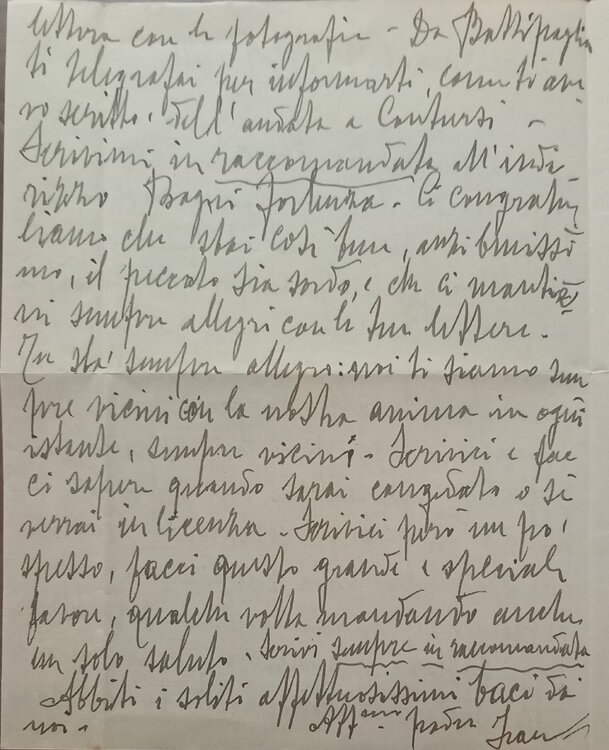 lettera con le fotografie - Da Battipaglia
ti telegrafai per informarti, come ti ave
vo scritto, dell'andata a Contursi -
Scrivimi in raccomandata all'indi
rizzo Bagni Forlenza - Ci congratu
liamo che stai così bene, anzi benissi
mo, il peccato sia sordo, e che ci mantie
ni sempre allegri con le tue lettere.
Tu sta' sempre allegro: noi ti siamo sem
pre vicini con la nostra anima in ogni
istante, sempre vicini - Scrivici e fac
ci sapere quando sarai congedato o se
verrai in licenza - Scrivici però un po'
spesso, facci questo grande e speciale
favore, qualche volta mandando anche
un solo saluto. Scrivi sempre in raccomandata
Abbiti i soliti affettuosissimi baci da
noi - Aff.mo padre